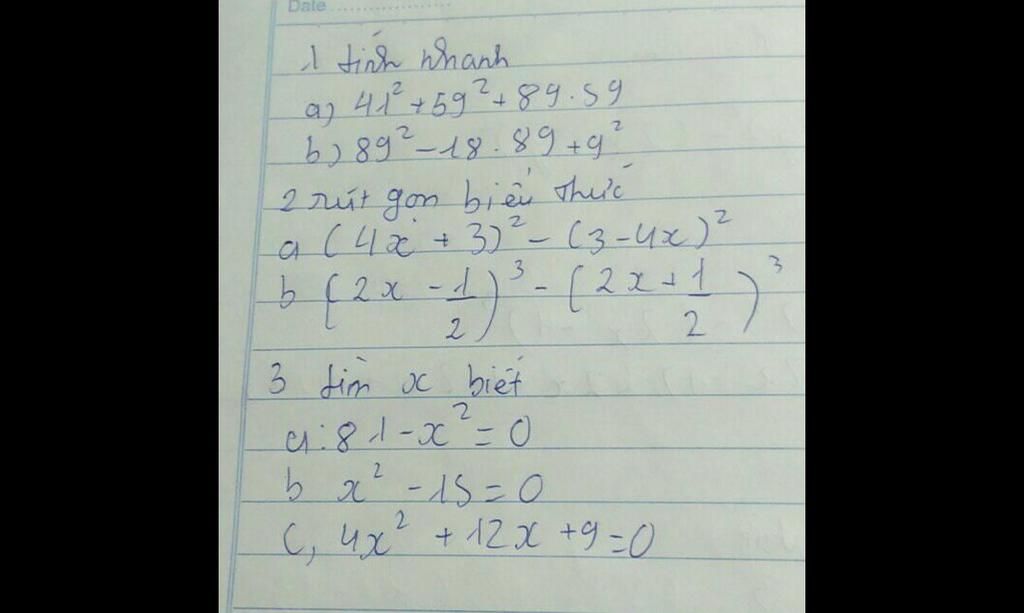 Date....................
1 tính nhanh
a) 41² + 59² + 89.59
b) 89² - 18.89 + 9²
2 rút gọn biểu thức
a (4x + 3)² - (3 - 4x)²
b (2x - 1/2)³ - (2x + 1/2)³
3 tìm x biết
a: 81 - x² = 0
b x² - 15 = 0
c, 4x² + 12x + 9 = 0